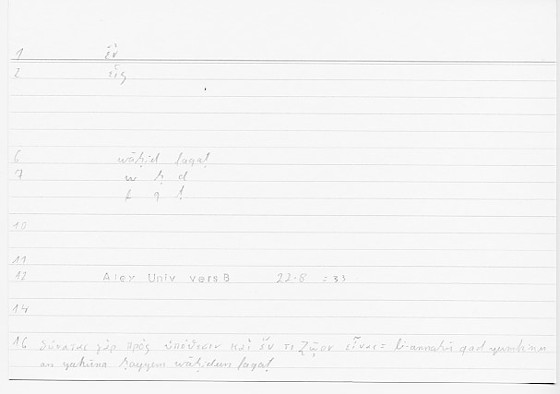 1 ἕν
2 εἷς
6 wāḥid faqaṭ
7 w ḥ d
f q ṭ
10
11
12 Alex Univ vers B 22.8 = 33
14
16 δύναται γὰρ πρὸς ὑπόθεσιν καὶ ἓν τὸ ζῷον εἶναι = li-annahū qad yumkinu
an yakūna ḥayyun wāḥidun faqaṭ